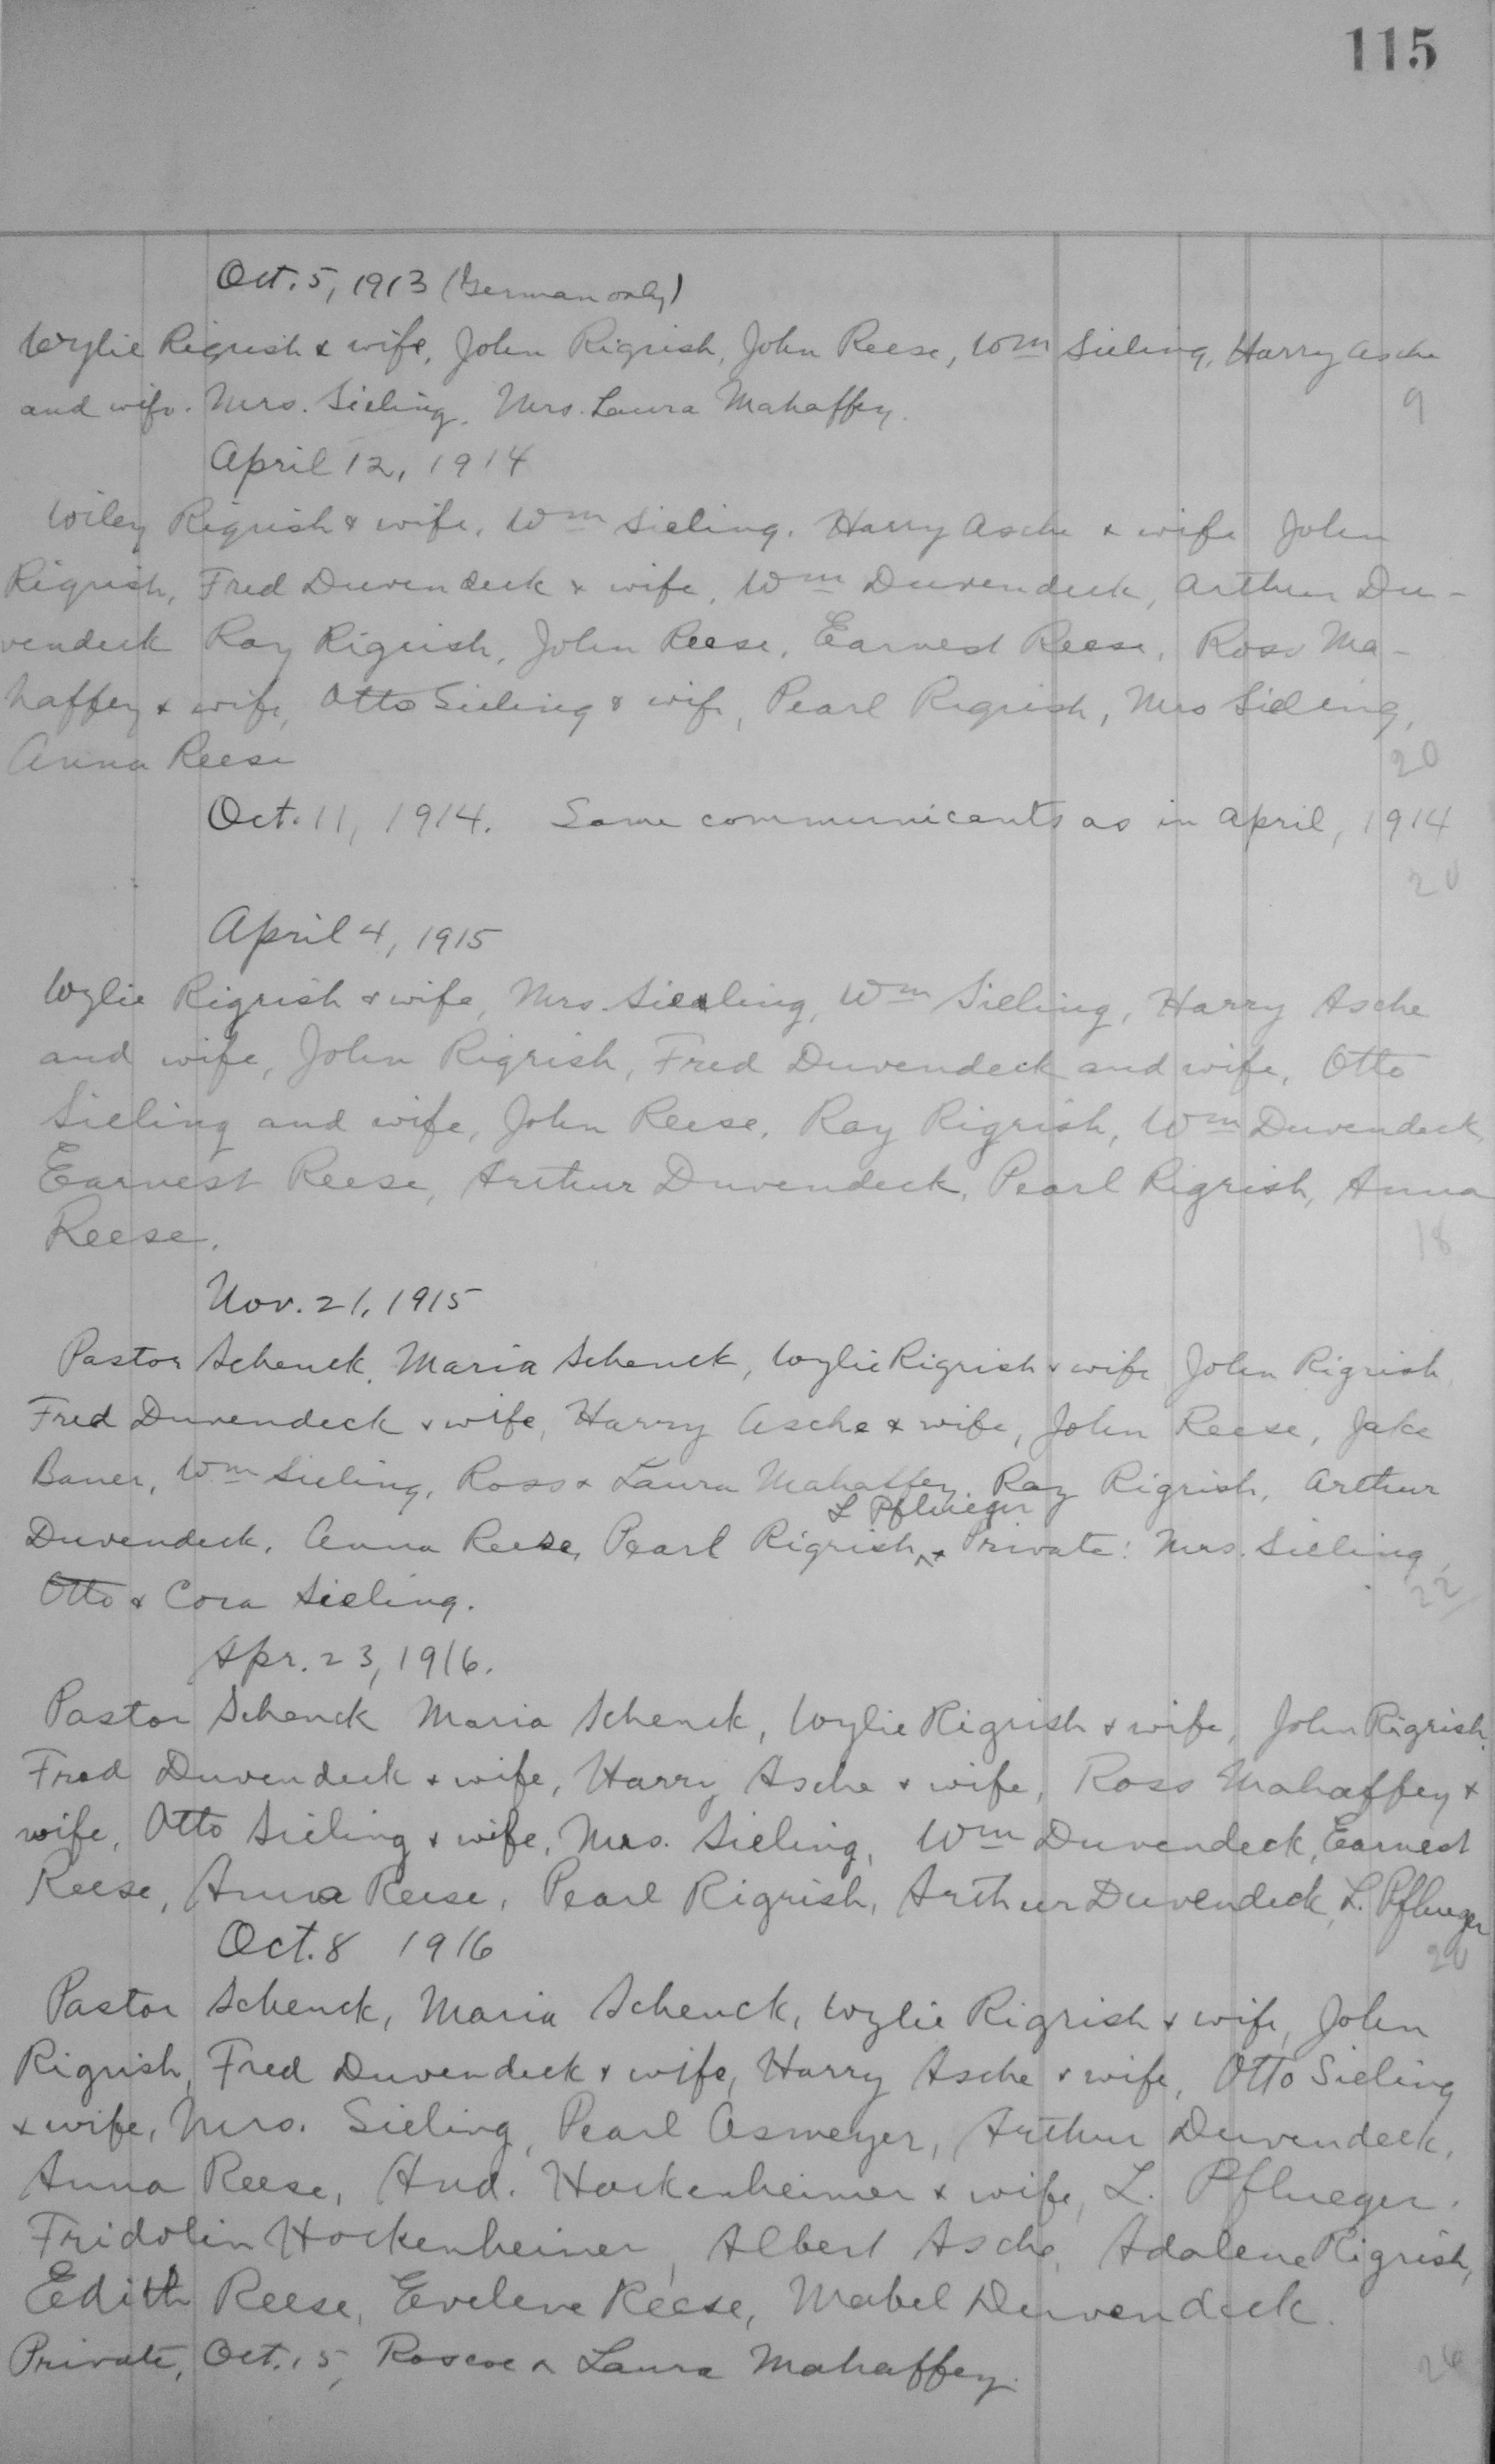 115
Oct. 5, 1913 (German only)
Wylie Rigrish & wife, John Rigrish, John Reese, Wm Sieling, Harry Asche
and wife. Mrs. Sieling, Mrs. Laura Mahaffey.
9
April 12, 1914
Wiley Rigrish & wife, Wm Sieling. Harry Asche & wife John
Rigrish, Fred Duvendeck & wife, Wm Duvendeck, Arthur Du-
vendeck Ray Rigrish, John Reese, Earnest Reese, Ross Ma-
haffey & wife, Otto Sieling & wife, Pearl Rigrish, Mrs Sieling,
Anna Reese
20
Oct. 11, 1914. Same communicants as in April, 1914
20
April 4, 1915
Wylie Rigrish & wife, Mrs. Sieling, Wm Sieling, Harry Asche
and wife, John Rigrish, Fred Duvendeck and wife, Otto
Sieling and wife, John Reese, Ray Rigrish, Wm Duvendeck,
Earnest Reese, Arthur Duvendeck, Pearl Rigrish, Anna
Reese.
18
Nov. 21, 1915
Pastor Schenck, Maria Schenck, Wylie Rigrish & wife John Rigrish,
Fred Duvendeck & wife, Harry Asche & wife, John Reese, Jake
Bauer, Wm Sieling, Ross & Laura Mahaffey, Ray Rigrish, Arthur
L Pflueger
Duvendeck, Anna Reese, Pearl Rigrish ^ & Private: Mrs. Sieling,
Otto & Cora Sieling.
22
Apr. 23, 1916.
Pastor Schenck Maria Schenck, Wylie Rigrish & wife, John Rigrish,
Fred Duvendeck & wife, Harry Asche & wife, Ross Mahaffey &
wife, Otto Sieling & wife, Mrs. Sieling, Wm Duvendeck, Earnest
Reese, Anna Reese, Pearl Rigrish, Arthur Duvendeck, L. Pflueger
Oct. 8 1916
Pastor Schenck, Maria Schenck, Wylie Rigrish & wife, John
Rigrish, Fred Duvendeck & wife, Harry Asche & wife, Otto Sieling
& wife, Mrs. Sieling, Pearl Asmeyer, Arthur Duvendeck,
Anna Reese, And. Hockenheimer & wife, L. Pflueger.
Fridolin Hockenheimer, Albert Asche, Adalene Rigrish,
Edith Reese, Evelene Reese, Mabel Duvendeck.
Private, Oct. 15, Roscoe & Laura Mahaffey.
26